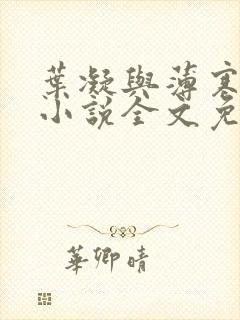 葉凝與薄寒
小說全文免
華卿晴